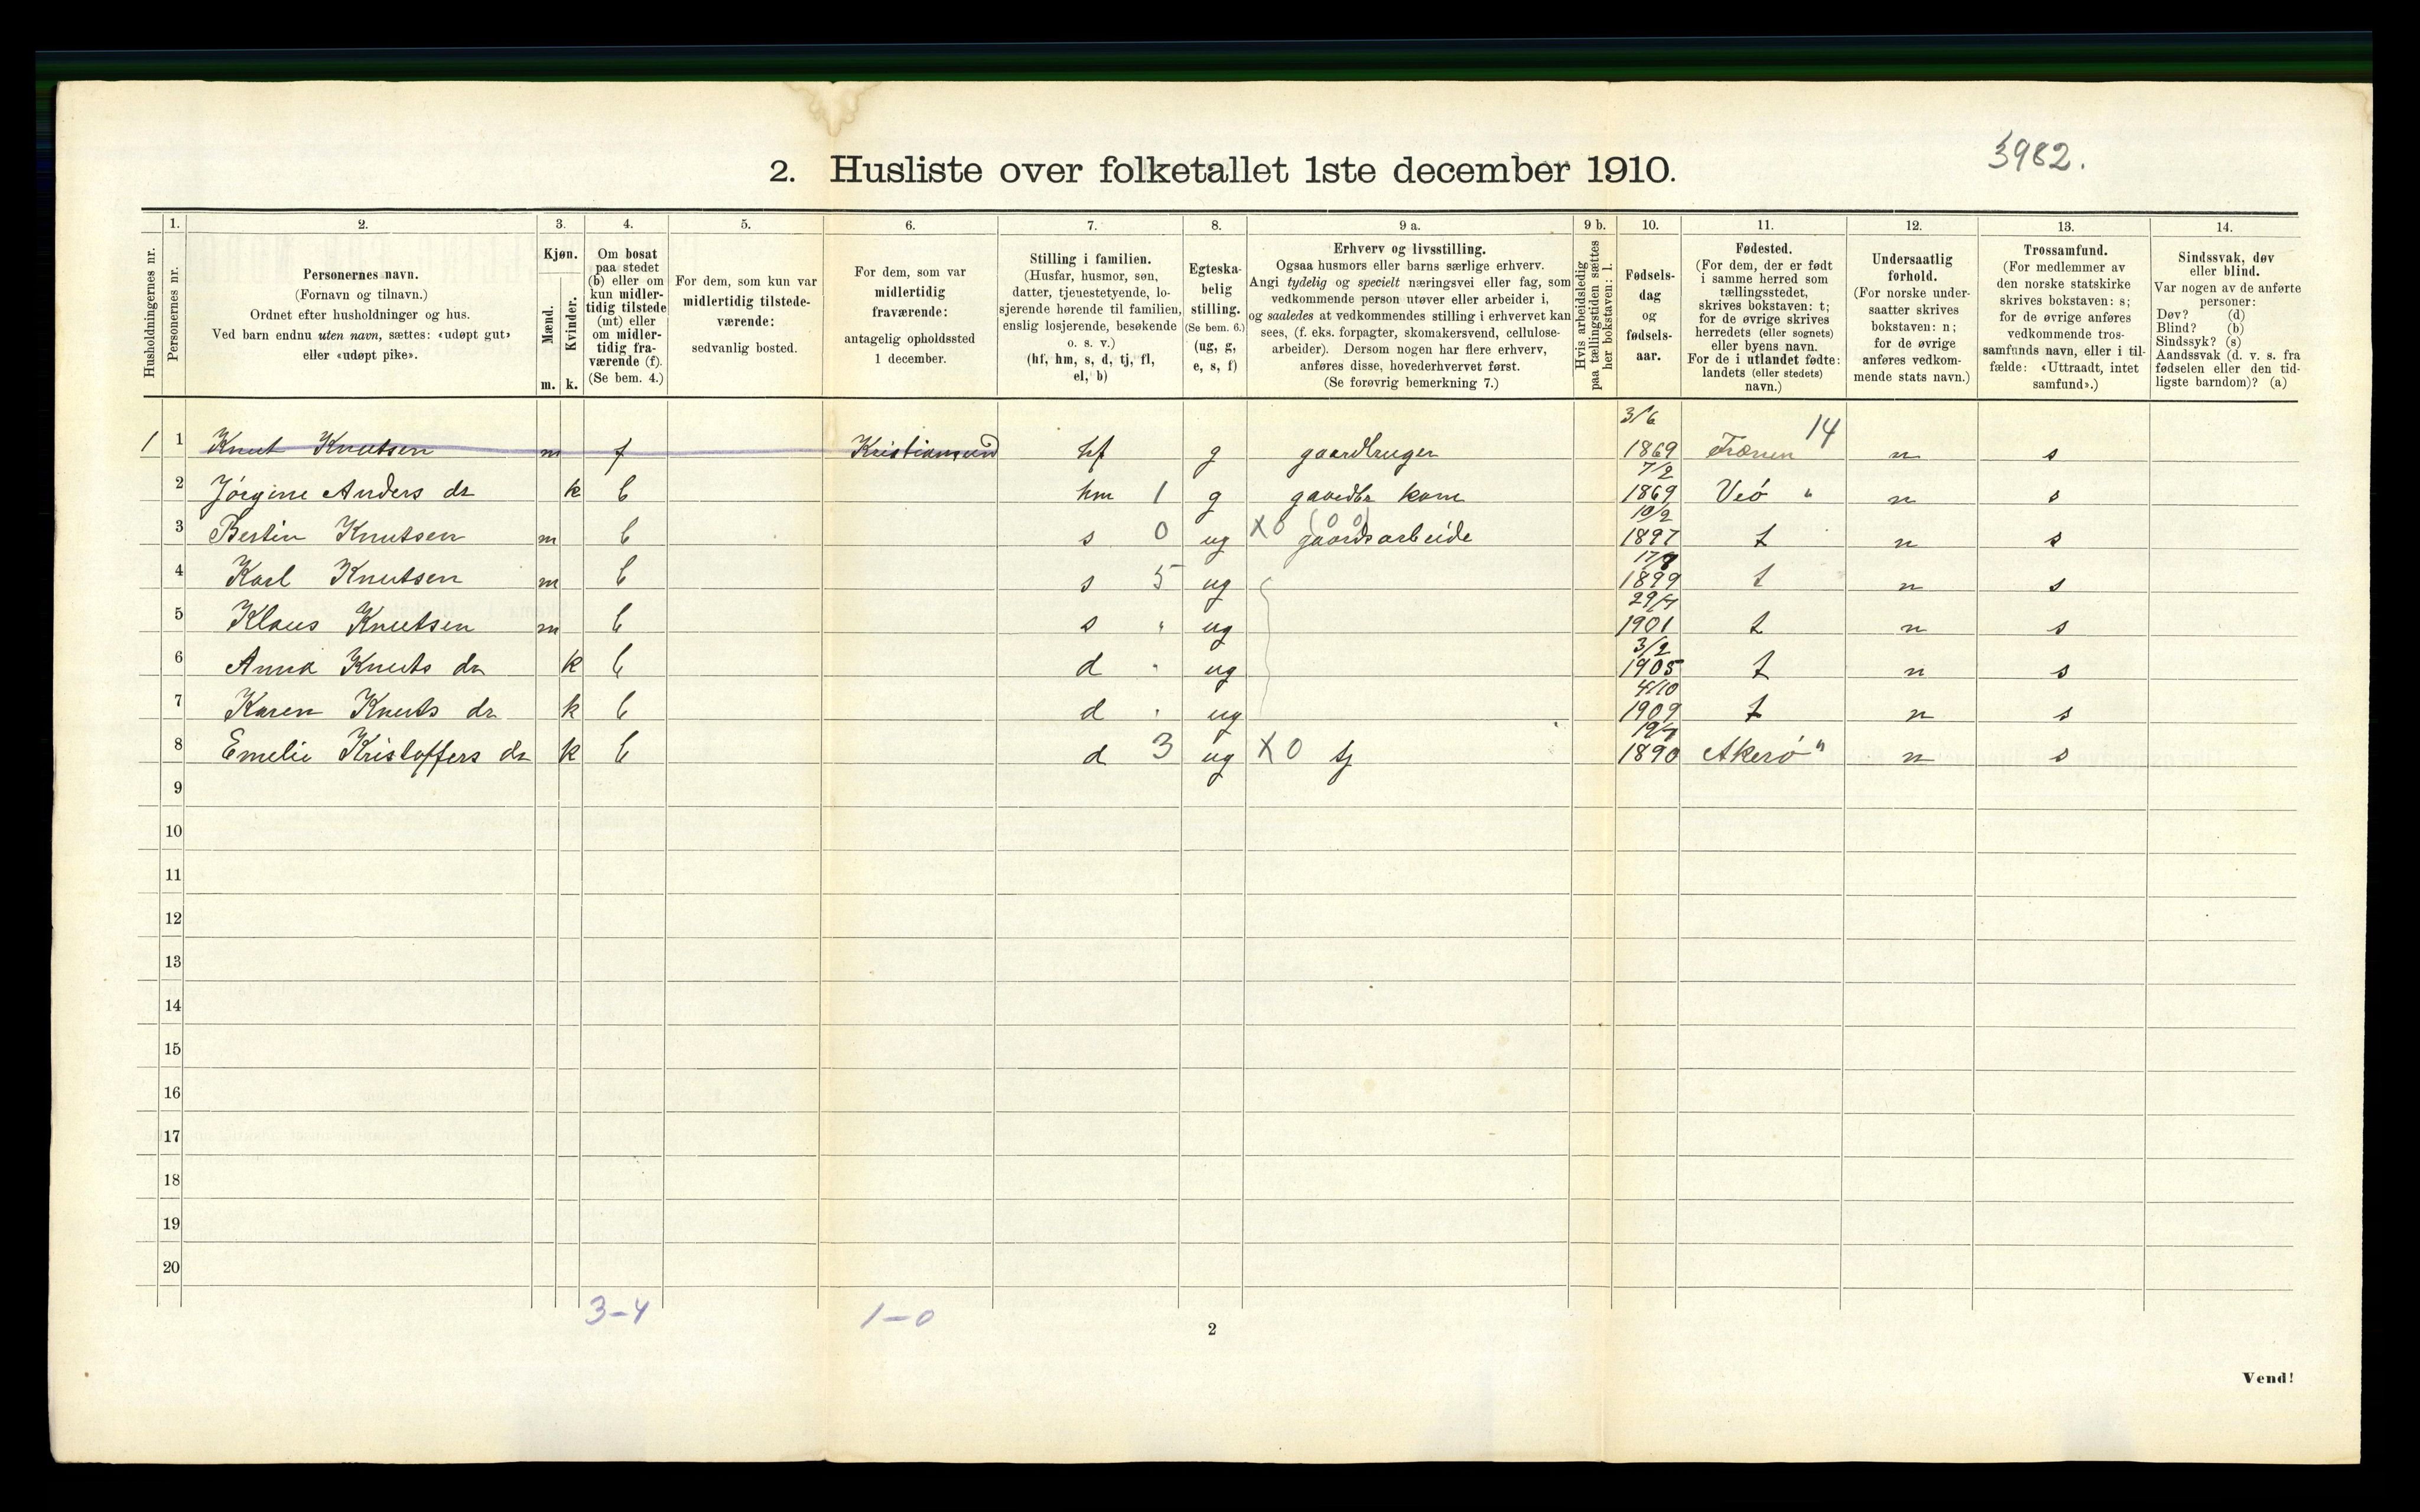 3982.
2. Husliste over folketallet 1ste december 1910.
1. 2. 3. 4. 5. 6. 7. 8. 9 a. 9 b. 10. 11. 12. 13. 14.
Husholdningernes nr.
Personernes nr.
Personernes navn.
(Fornavn og tilnavn.)
Ordnet efter husholdninger og hus.
Ved barn endnu uten navn, sættes: «udøpt gut»
eller «udøpt pike».
Kjøn.
Mænd.
Kvinder.
m. k.
Om bosat
paa stedet
(b) eller om
kun midler-
tidig tilstede
(mt) eller
om midler-
tidig fra-
værende (f).
(Se bem. 4.)
For dem, som kun var
midlertidig tilstede-
værende:
sedvanlig bosted.
For dem, som var
midlertidig
fraværende:
antagelig opholdssted
1 december.
Stilling i familien.
(Husfar, husmor, søn,
datter, tjenestetyende, lo-
sjerende hørende til familien,
enslig losjerende, besøkende
o. s. v.)
(hf, hm, s, d, tj, fl,
el, b)
Egteska-
belig
stilling.
(Se bem. 6.)
(ug, g,
e, s, f)
Erhverv og livsstilling.
Ogsaa husmors eller barns særlige erhverv.
Angi tydelig og specielt næringsvei eller fag, som
vedkommende person utøver eller arbeider i,
og saaledes at vedkommendes stilling i erhvervet kan
sees, (f. eks. forpagter, skomakersvend, cellulose-
arbeider). Dersom nogen har flere erhverv,
anføres disse, hovederhvervet først.
(Se forøvrig bemerkning 7.)
Hvis arbeidsledig
paa tællingstiden sættes
her bokstaven: l.
Fødsels-
dag
og
fødsels-
aar.
Fødested.
(For dem, der er født
i samme herred som
tællingsstedet,
skrives bokstaven: t;
for de øvrige skrives
herredets (eller sognets)
eller byens navn.
For de i utlandet fødte:
landets (eller stedets)
navn.)
Undersaatlig
forhold.
(For norske under-
saatter skrives
bokstaven: n;
for de øvrige
anføres vedkom-
mende stats navn.)
Trossamfund.
(For medlemmer av
den norske statskirke
skrives bokstaven: s;
for de øvrige anføres
vedkommende tros-
samfunds navn, eller i til-
fælde: «Uttraadt, intet
samfund».)
Sindssvak, døv
eller blind.
Var nogen av de anførte
personer:
Døv? (d)
Blind? (b)
Sindssyk? (s)
Aandssvak (d. v. s. fra
fødselen eller den tid-
ligste barndom)? (a)
1 1 Knut Knutsen m f Kristiansund hf g gaardbruger 3/6 1869 Frænen 14 n s
2 Jørgine Anders dr k b hm 1 g gaardbr kone 7/2 1869 Veø " n s
3 Bertin Knutsen m b s 0 ug X0 (0 0) gaardsarbeide 10/2 1897 t n s
4 Karl Knutsen m b s 5 ug 1899 t n s
5 Klaus Knutsen m b s " ug 1901 t n s
6 Anna Knuts dr k b d " ug 3/2 1905 t n s
7 Karen Knuts dr k b d " ug 4/10 1909 t n s
8 Emelie Kristoffers dr k b d 3 ug X0 tj 1890 Akerø " n s
9
10
11
12
13
14
15
16
17
18
19
20
3-4 1-0
2
Vend!